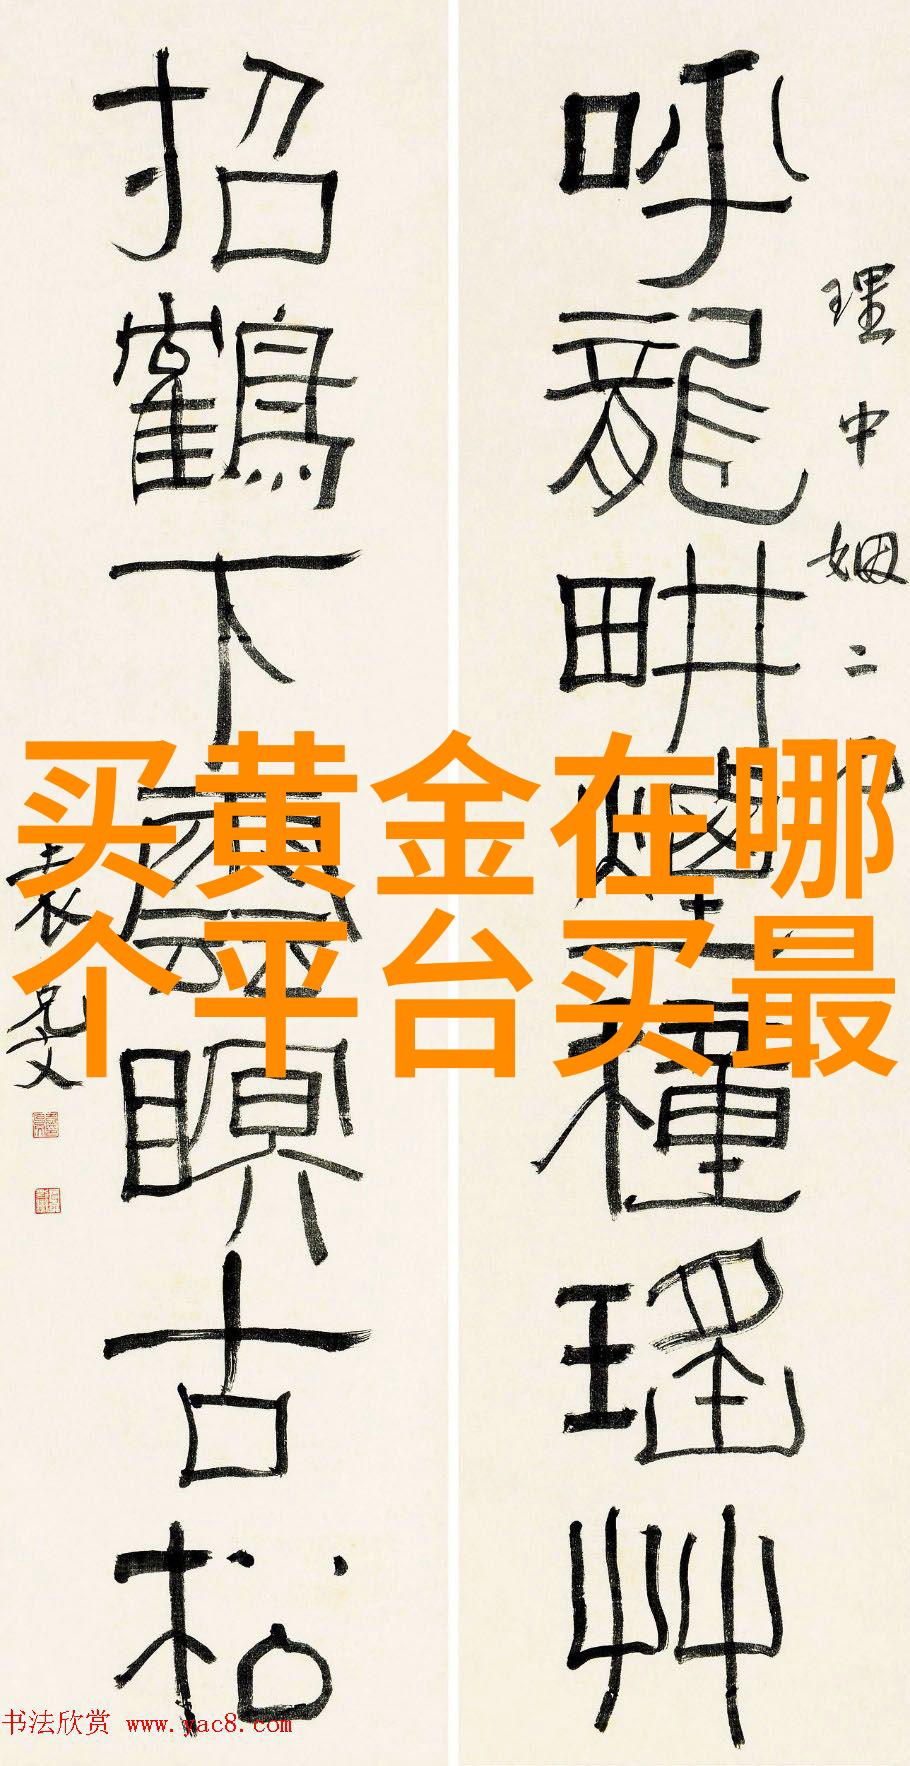 理中姻二兄
呼龍畊煙種瑤艸
招鶴下雲瞑古松
袁克文
买黄金在哪
个平台买最
书法欣赏 www.yac8.com